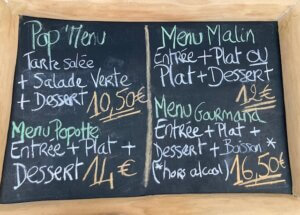 Pop'Menu
Tarte salée
+ Salade Verte
+ Dessert 10,50€
Menu Popotte
Entrée + Plat +
Dessert 14€
Menu Malin
Entrée + Plat ou
Plat + Dessert
12€
Menu Gourmand
Entrée + Plat +
Dessert + Boisson *
(*hors alcool) 16,50€